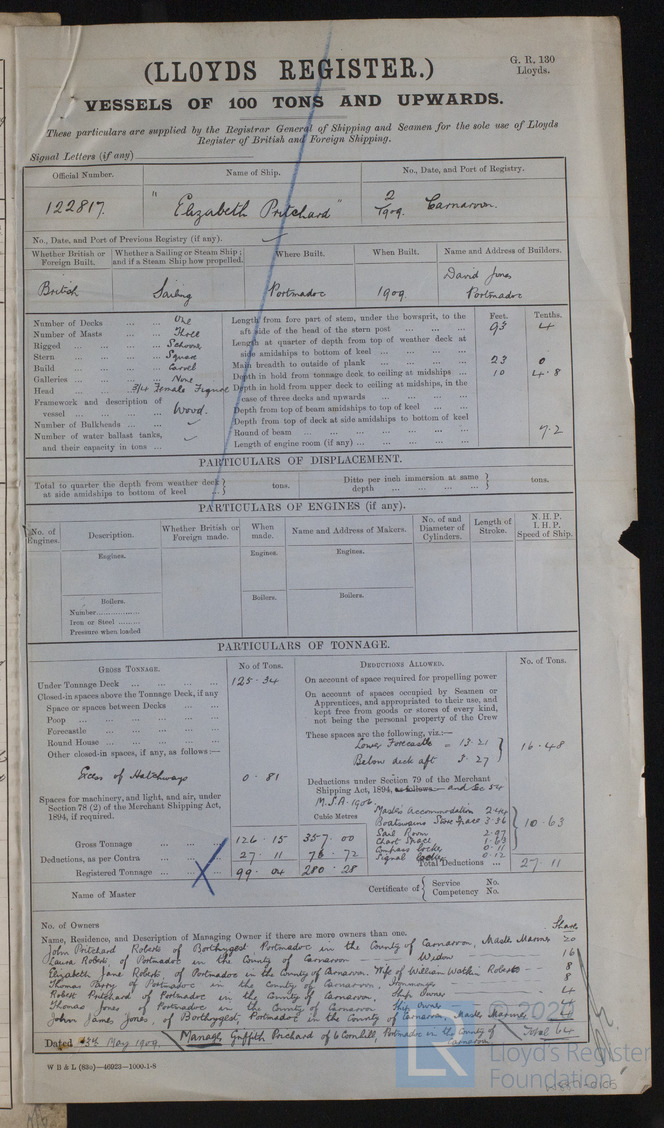 G. R. 130
Lloyds.
(LLOYDS REGISTER.)
VESSELS OF 100 TONS AND UPWARDS.
These particulars are supplied by the Registrar General of Shipping and Seamen for the sole use of Lloyds
Register of British and Foreign Shipping.
Signal Letters (if any)
Official Number. Name of Ship. No., Date, and Port of Registry.
122817. "Elizabeth Pritchard" 2/1909. Carnarvon.
No., Date, and Port of Previous Registry (if any).
Whether British or Foreign Built. Whether a Sailing or Steam Ship; and if a Steam Ship how propelled. Where Built. When Built. Name and Address of Builders.
British Sailing Portmadoc 1909 David Jones Portmadoc
Number of Decks ... ... One
Number of Masts ... ... Three
Rigged ... ... Schooner
Stern ... ... Square
Build ... ... Carvel
Galleries ... ... None
Head ... ... 3/4 Female Figure
Framework and description of vessel ... ... Wood.
Number of Bulkheads ... ...
Number of water ballast tanks, and their capacity in tons ...
Feet. Tenths.
Length from fore part of stem, under the bowsprit, to the aft side of the head of the stern post ... 93 4
Length at quarter of depth from top of weather deck at side amidships to bottom of keel ...
Main breadth to outside of plank ... 23 0
Depth in hold from tonnage deck to ceiling at midships ... 10 4.8
Depth in hold from upper deck to ceiling at midships, in the case of three decks and upwards ...
Depth from top of beam amidships to top of keel ...
Depth from top of deck at side amidships to bottom of keel
Round of beam ... 7.2
Length of engine room (if any) ...
PARTICULARS OF DISPLACEMENT.
Total to quarter the depth from weather deck at side amidships to bottom of keel ... tons. Ditto per inch immersion at same depth ... tons.
PARTICULARS OF ENGINES (if any).
No. of Engines. Description. Whether British or Foreign made. When made. Name and Address of Makers. No. of and Diameter of Cylinders. Length of Stroke. N.H.P. I.H.P. Speed of Ship.
Engines. Engines. Engines.
Boilers. Boilers. Boilers.
Number
Iron or Steel
Pressure when loaded
PARTICULARS OF TONNAGE.
GROSS TONNAGE. No of Tons. DEDUCTIONS ALLOWED. No. of Tons.
Under Tonnage Deck ... 125.34
Closed-in spaces above the Tonnage Deck, if any
Space or spaces between Decks
Poop
Forecastle
Round House
Other closed-in spaces, if any, as follows:—
Excess of Hatchways 0.81
Spaces for machinery, and light, and air, under Section 78 (2) of the Merchant Shipping Act, 1894, if required.
Cubic Metres
Gross Tonnage ... 126.15 357.00
Deductions, as per Contra ... 27.11 76.72
Registered Tonnage ... 99.04 280.28
On account of space required for propelling power
On account of spaces occupied by Seamen or Apprentices, and appropriated to their use, and kept free from goods or stores of every kind, not being the personal property of the Crew
These spaces are the following, viz.:—
Lower Forecastle = 13.21
Below deck aft 3.27
16.48
Deductions under Section 79 of the Merchant Shipping Act, 1894, as follows and Sec 54
M.S.A. 1906.
Master's Accommodation 2.44
Boatswain's Store Space 3.36
Sail Room 2.97
Chart Space 1.63
Compass locker 0.11
Signal locker 0.12
10.63
Total Deductions ... 27.11
Name of Master
Certificate of Service No. Competency No.
No. of Owners
Name, Residence, and Description of Managing Owner if there are more owners than one. Shares
John Pritchard Roberts of Borthygest Portmadoc in the County of Carnarvon, Master Mariner 20
Laura Roberts of Portmadoc in the County of Carnarvon Widow 16
Elizabeth Jane Roberts, of Portmadoc in the County of Carnarvon. Wife of William Watkin Roberts 8
Thomas Parry of Portmadoc in the County of Carnarvon, Ironmonger 8
Robert Pritchard of Portmadoc in the County of Carnarvon, Ship Owner 4
Thomas Jones of Portmadoc in the County of Carnarvon Ship Owner 4
John James Jones, of Borthygest, Portmadoc in the County of Carnarvon, Master Mariner 4
Manager Griffith Prichard of 6 Cornhill, Portmadoc in the County of Carnarvon Total 64
Dated 13th May 1909.
W B & L (83o)—46923—1000-1-8
© 202
LR
Lloyd's Register
Foundation